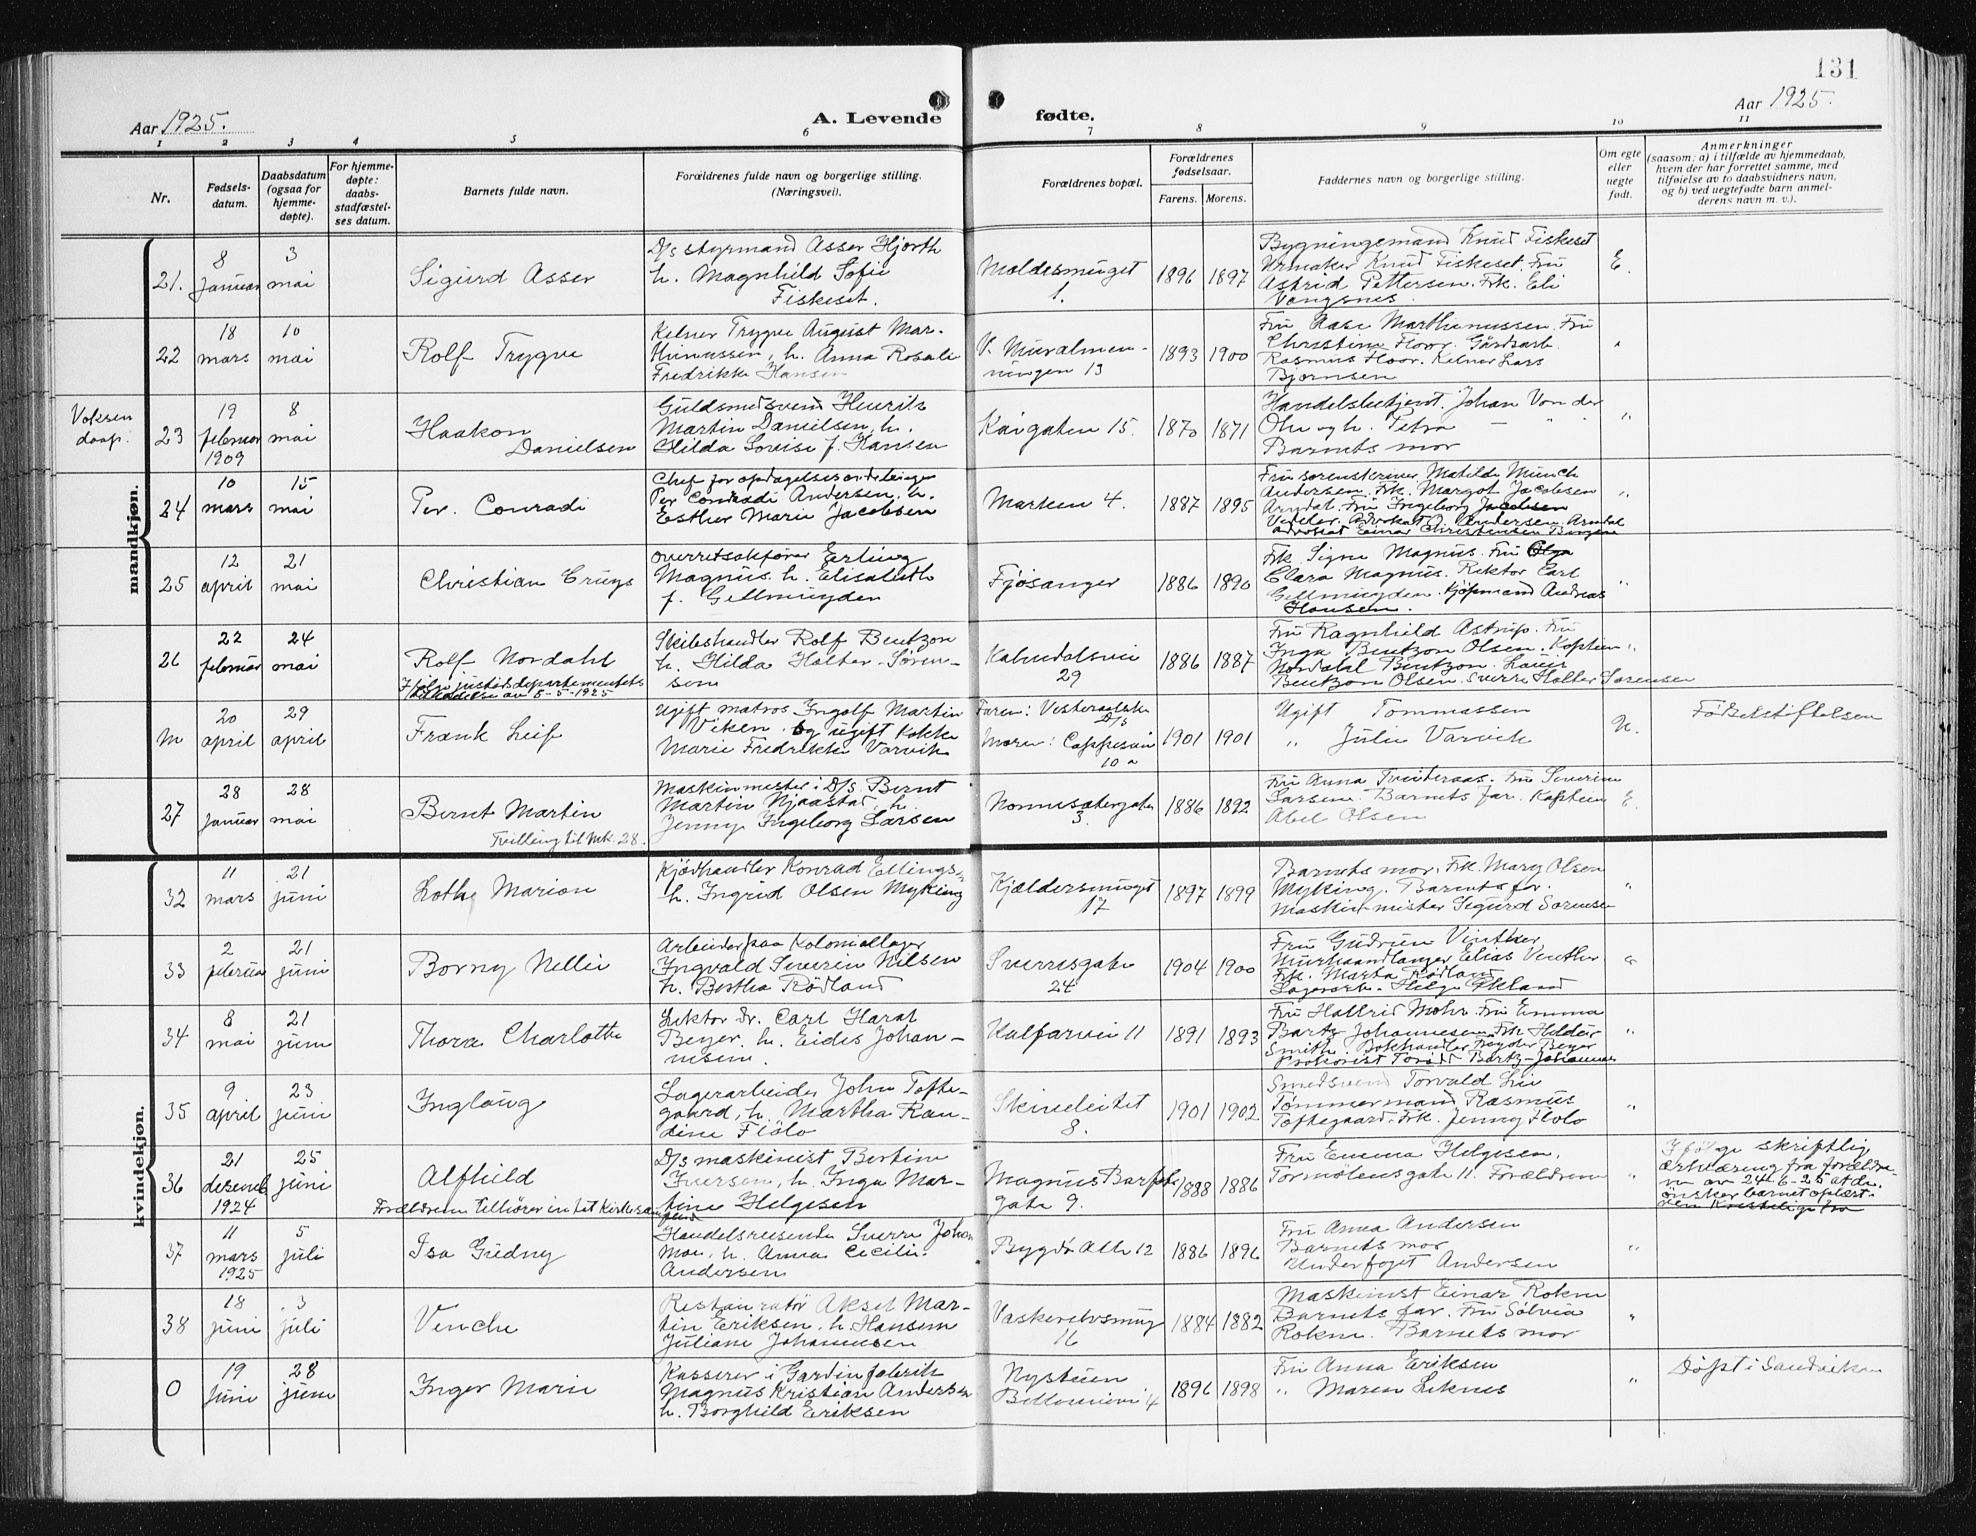 131
Aar 1925.
A. Levende
fødte.
Aar 1925.
1 2 3 4 5 6 7 8 9 10 11
Nr.
Fødsels-
datum.
Daabsdatum
(ogsaa for
hjemme-
døpte).
For hjemme-
døpte:
daabs-
stadfæstel-
ses datum.
Barnets fulde navn.
Forældrenes fulde navn og borgerlige stilling.
(Næringsvei).
Forældrenes bopæl.
Forældrenes
fødselsaar.
Farens. Morens.
Faddernes navn og borgerlige stilling.
Om egte
eller
uegte
født.
Anmerkninger
(saasom: a) i tilfælde av hjemmedaab,
hvem der har forrettet samme, med
tilføielse av to daabsvidners navn,
og b) ved uegtefødte barn anmel-
derens navn m. v.).
mandkjøn.
21.
8
Januar
3
mai
Sigurd Asser
D/s styrmand Asser Hjorth
h. Magnhild Sofie
Fiskeset.
Moldesmuget
1.
1896 1897
Bygningsmand Knud Fiskeset
Urmaker Knud Fiskeset. Fru
Astrid Pettersen. Frk. Eli
Vangsnes.
E.
22
18
mars
10
mai
Rolf Trygve
Kelner Trygve August Mar-
thinussen, h. Anna Rosali
Fredrikke Hansen
V. Muralmen-
ningen 13
1893 1900
Fru Aase Marthinussen. Fru
Christine Floor. Gårdsarb.
Rasmus Floor. Kelner Lars
Bjørnsen
"
Voksen
daap.
23
19
februar
1909
8
mai
Haakon
Danielsen
Guldsmedsvend Henrik
Martin Danielsen, h.
Hilda Lovise f. Hansen
Kaigaten 15.
1870 1871
Handelsbetjent. Johan Von der
Ohe og h. Petra — " "
Barnets mor
"
24
10
mars
15
mai
Per. Conradi
Chef for opdagelsesavdelingen
Per Conradi Andersen, h.
Esther Marie Jacobsen
Marken 4.
1887 1895
Fru sorenskriver Matilde Munch
Andersen. Frk. Margot Jacobsen
Arndal. Fru Ingeborg Jacobsen
Advokat Andersen. Arndal
advokat Einar Christensen Bergen
"
25
12
april
21
mai
Christian Cruys
Overretssakfører Erling
Magnus. h. Elisabeth
f. Gellmuyden
Fjøsanger
1886 1890
Frk. Signe Magnus. Fru Olga
Clara Magnus. Rektor Carl
Gellmuyden. Kjøpmand Andreas
Hansen.
"
26
22
februar
24
mai
Rolf Nordahl
Ifølge justisdepartementets
av 5-5-1925
Skibshandler Rolf Bentzon
h. Hilda Holter-Søren-
sen
Kalvedalsvei
29
1886 1887
Fru Ragnhild Astrup. Fru
Inga Bentzon Olsen. Kaptein
Nordahl Bentzon.
Bentzon Olsen. Sverre Holter Sørensen
"
m
20
april
29
april
Frank Leif
Ugift matros Ingolf Martin
Viken. og ugift kokke
Marie Fredrikke Varvik
Faren: Vesteraalske
D/s
Moren: Cappesvei
10 a
1901 1901
Ugift Tommassen
" Julie Varvik
U.
Fødselstiftelsen
27
28
Januar
28
mai
Bernt Martin
Tvilling til Nr. 28.
Maskinmester i D/s Bernt
Martin Njaastad, h.
Jenny Ingeborg Larsen
Nonnesætergaten
3.
1886 1892
Fru Anna Tveiteraas. Fru Severine
Larsen. Barnets far. Kaptein
Abel Olsen
E.
kvindekjøn.
32
11
mars
21
juni
Lothe Marion
Kjødhandler Konrad Ellings.
h. Ingrid Olsen Myking
Kjældersmuget
17
1897 1899
Barnets mor. Frk. Mary Olsen
Myking. Barnets far.
Maskinmester Sigurd Sørensen
"
33
2
februar
21
juni
Borny Nellie
Arbeider paa Koloniallager
Ingvald Severin Nilsen
h. Bertha Rødland
Sverresgate
24
1904 1900
Fru Gudrun Vinther
Murhaandlanger Elias Venther
Frk. Marta Rødland
Lagerarb. Helge Økland
"
34
8
mai
21
juni
Thora Charlotte
Lektor Dr. Carl Harat
Beyer. h. Eides Johan-
nesen.
Kalfarvei 11
1891 1893
Fru Hallrid Mohr. Fru Emma
Bartz Johannesen. Frk. Heldur
Smith. Bokhandler Freyder Beyer
Prokurist Tora Bartz-Johannesen
"
35
9
april
23
juni
Inglaug
Lagerarbeider John Tofte-
gaard, h. Martha Ran-
dine Flølo
Skivebeitet
8.
1901 1902
Smedsvend Torvald Lie
Tømmermand Rasmus
Toftegaard. Frk. Jenny Flolo
"
36
21
desemb.
1924
25
juni
Alfhild
Forældrene tilhører intet kirkesamfund
D/s maskinist Bertine
Iversen, h. Inga Mar-
tine Helgesen
Magnus Barfots
gate 9.
1888 1886
Fru Emma Helgesen,
Tormølensgate 11. Forældrene
"
Ifølge skriftlig
erklæring fra forældre
ne av 24-6-25 at de
ønsker barnet oplært i
den kristelige tro
37
11
mars
1925
5
juli
Isa Gudny
Handelsreisende Sverre Johan
Moe, h. Anna Cecilie
Andersen
Bygdø Alle 12
1886 1896
Fru Anna Andersen
Barnets mor
Underfoget Andersen
"
38
18
juni
3
juli
Venche
Restauratør Aksel Mar-
tin Eriksen, h. Hansem
Juliane Johannesen
Vaskerelvsmug
16
1884 1882
Maskinist Einar Rokne
Barnets far. Fru Solvia
Rokne. Barnets mor
"
0
19
juni
28
juni
Inger Marie
Kasserer i Gardinfabrik
Magnus Kristian Andersen
h. Borghild Eriksen
Nystuen
1896 1898
Fru Anna Eriksen
" Maren Leknes
"
Døpt i Sandviken